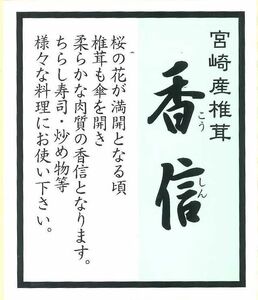 宮崎産椎茸
香信
こう
しん
桜の花が満開となる頃
椎茸も傘を開き
柔らかな肉質の香信となります。
ちらし寿司・炒め物等
様々な料理にお使い下さい。